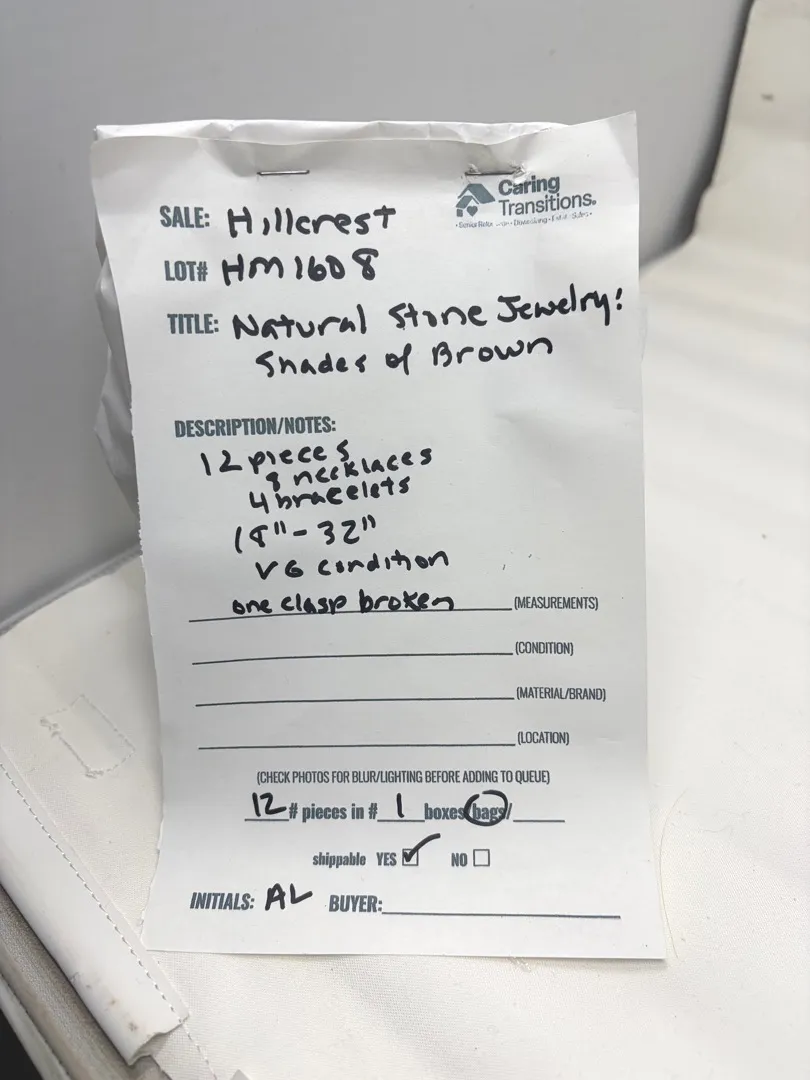 Caring
Transitions.
SALE: Hillcrest
LOT# HM1608
TITLE: Natural Stone Jewelry:
Shades of Brown
DESCRIPTION/NOTES:
12 pieces
8 necklaces
4 bracelets
18"-32"
VG condition
one clasp broken (MEASUREMENTS)
(CONDITION)
(MATERIAL/BRAND)
(LOCATION)
(CHECK PHOTOS FOR BLUR/LIGHTING BEFORE ADDING TO QUEUE)
12 # pieces in # 1 boxes/bags/
shippable YES ☑ NO ☐
INITIALS: AL BUYER: